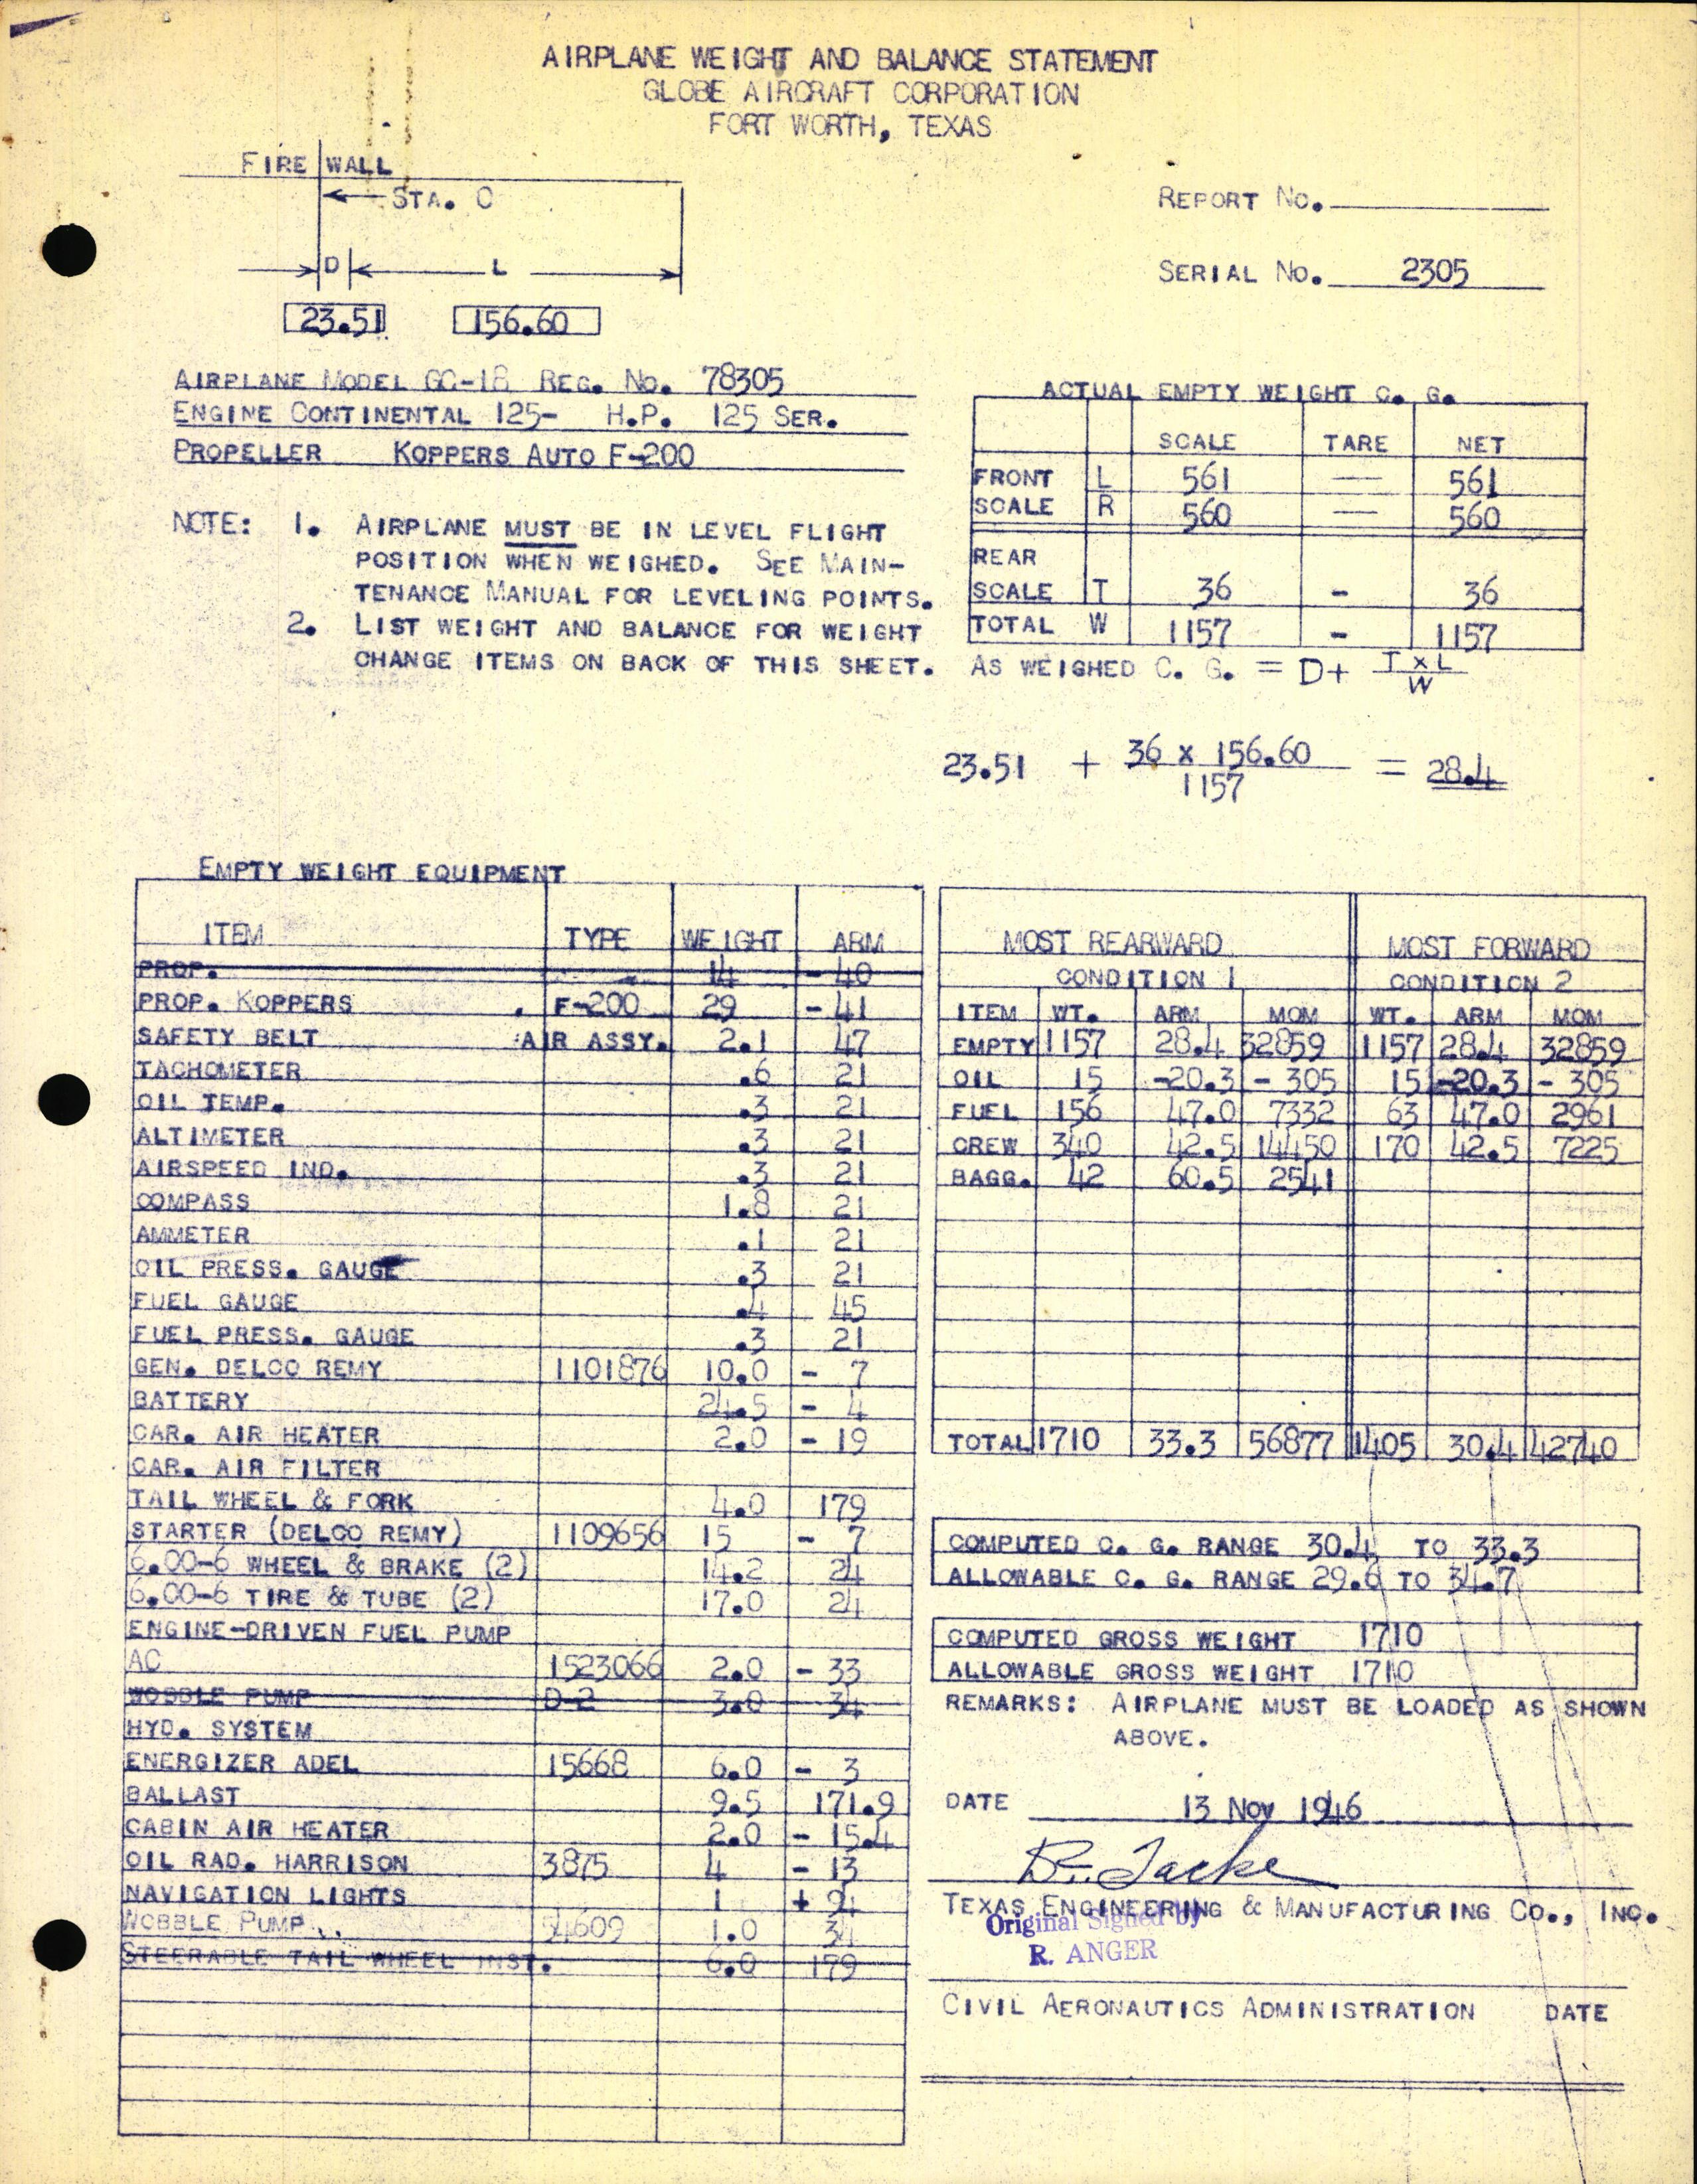 AIRPLANE WEIGHT AND BALANCE STATEMENT
GLOBE AIRCRAFT CORPORATION
FORT WORTH, TEXAS
FIRE WALL
STA. 0
D L
23.51 156.60
REPORT NO.
SERIAL NO. 2305
AIRPLANE MODEL GC-1B REG. NO. 78305
ENGINE CONTINENTAL 125- H.P. 125 SER.
PROPELLER KOPPERS AUTO F-200
NOTE: 1. AIRPLANE MUST BE IN LEVEL FLIGHT
POSITION WHEN WEIGHED. SEE MAIN-
TENANCE MANUAL FOR LEVELING POINTS.
2. LIST WEIGHT AND BALANCE FOR WEIGHT
CHANGE ITEMS ON BACK OF THIS SHEET.
ACTUAL EMPTY WEIGHT C. G.
SCALE TARE NET
FRONT L 561 — 561
SCALE R 560 — 560
REAR
SCALE T 36 - 36
TOTAL W 1157 - 1157
AS WEIGHED C. G. = D+ T x L
W
23.51 + 36 x 156.60 = 28.4
1157
EMPTY WEIGHT EQUIPMENT
ITEM TYPE WEIGHT ARM
PROP. 14 - 40
PROP. KOPPERS F-200 29 - 41
SAFETY BELT AIR ASSY. 2.1 47
TACHOMETER .6 21
OIL TEMP. .3 21
ALTIMETER .3 21
AIRSPEED IND. .3 21
COMPASS 1.8 21
AMMETER .1 21
OIL PRESS. GAUGE .3 21
FUEL GAUGE .4 45
FUEL PRESS. GAUGE .3 21
GEN. DELCO REMY 1101876 10.0 - 7
BATTERY 24.5 - 4
CAR. AIR HEATER 2.0 - 19
CAR. AIR FILTER
TAIL WHEEL & FORK 4.0 179
STARTER (DELCO REMY) 1109656 15 - 7
6.00-6 WHEEL & BRAKE (2) 14.2 24
6.00-6 TIRE & TUBE (2) 17.0 24
ENGINE-DRIVEN FUEL PUMP
AC 1523066 2.0 - 33
WOBBLE PUMP D-2 3.0 34
HYD. SYSTEM
ENERGIZER ADEL 15668 6.0 - 3
BALLAST 9.5 171.9
CABIN AIR HEATER 2.0 - 15.4
OIL RAD. HARRISON 3875 4 - 13
NAVIGATION LIGHTS 1 + 94
WOBBLE PUMP 54609 1.0 34
STEERABLE TAIL WHEEL INST. 6.0 179
MOST REARWARD MOST FORWARD
CONDITION 1 CONDITION 2
ITEM WT. ARM MOM WT. ARM MOM
EMPTY 1157 28.4 32859 1157 28.4 32859
OIL 15 -20.3 - 305 15 -20.3 - 305
FUEL 156 47.0 7332 63 47.0 2961
CREW 340 42.5 14450 170 42.5 7225
BAGG. 42 60.5 2541
TOTAL 1710 33.3 56877 1405 30.4 42740
COMPUTED C. G. RANGE 30.4 TO 33.3
ALLOWABLE C. G. RANGE 29.6 TO 34.7
COMPUTED GROSS WEIGHT 1710
ALLOWABLE GROSS WEIGHT 1710
REMARKS: AIRPLANE MUST BE LOADED AS SHOWN
ABOVE.
DATE 13 NOV 1946
TEXAS ENGINEERING & MANUFACTURING CO., INC.
Original Signed by
R. ANGER
CIVIL AERONAUTICS ADMINISTRATION DATE